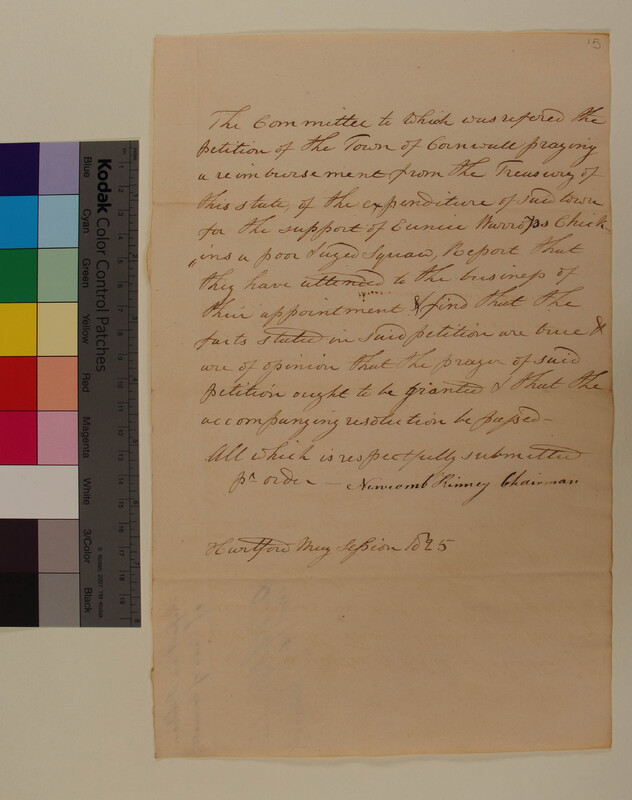 15
The Committee to which was refered the
Petition of the Town of Cornwall praying
a reimbursement from the Treasury of
this state, of the expenditure of said town
for the support of Eunice Warrops Chick
„ins a poor Aged Squaw, Report that
they have attended to the business of
their appointment & find that the
facts stated in said petition are true &
are of opinion that the prayer of said
Petition ought to be granted & that the
accompanying resolution be passed–
All which is respectfully submitted
pr order — Newcomb Kinney Chairman
Hartford May Session 1825
Kodak Color Control Patches
Blue
Cyan
Green
Yellow
Red
Magenta
White
3/Color
Black